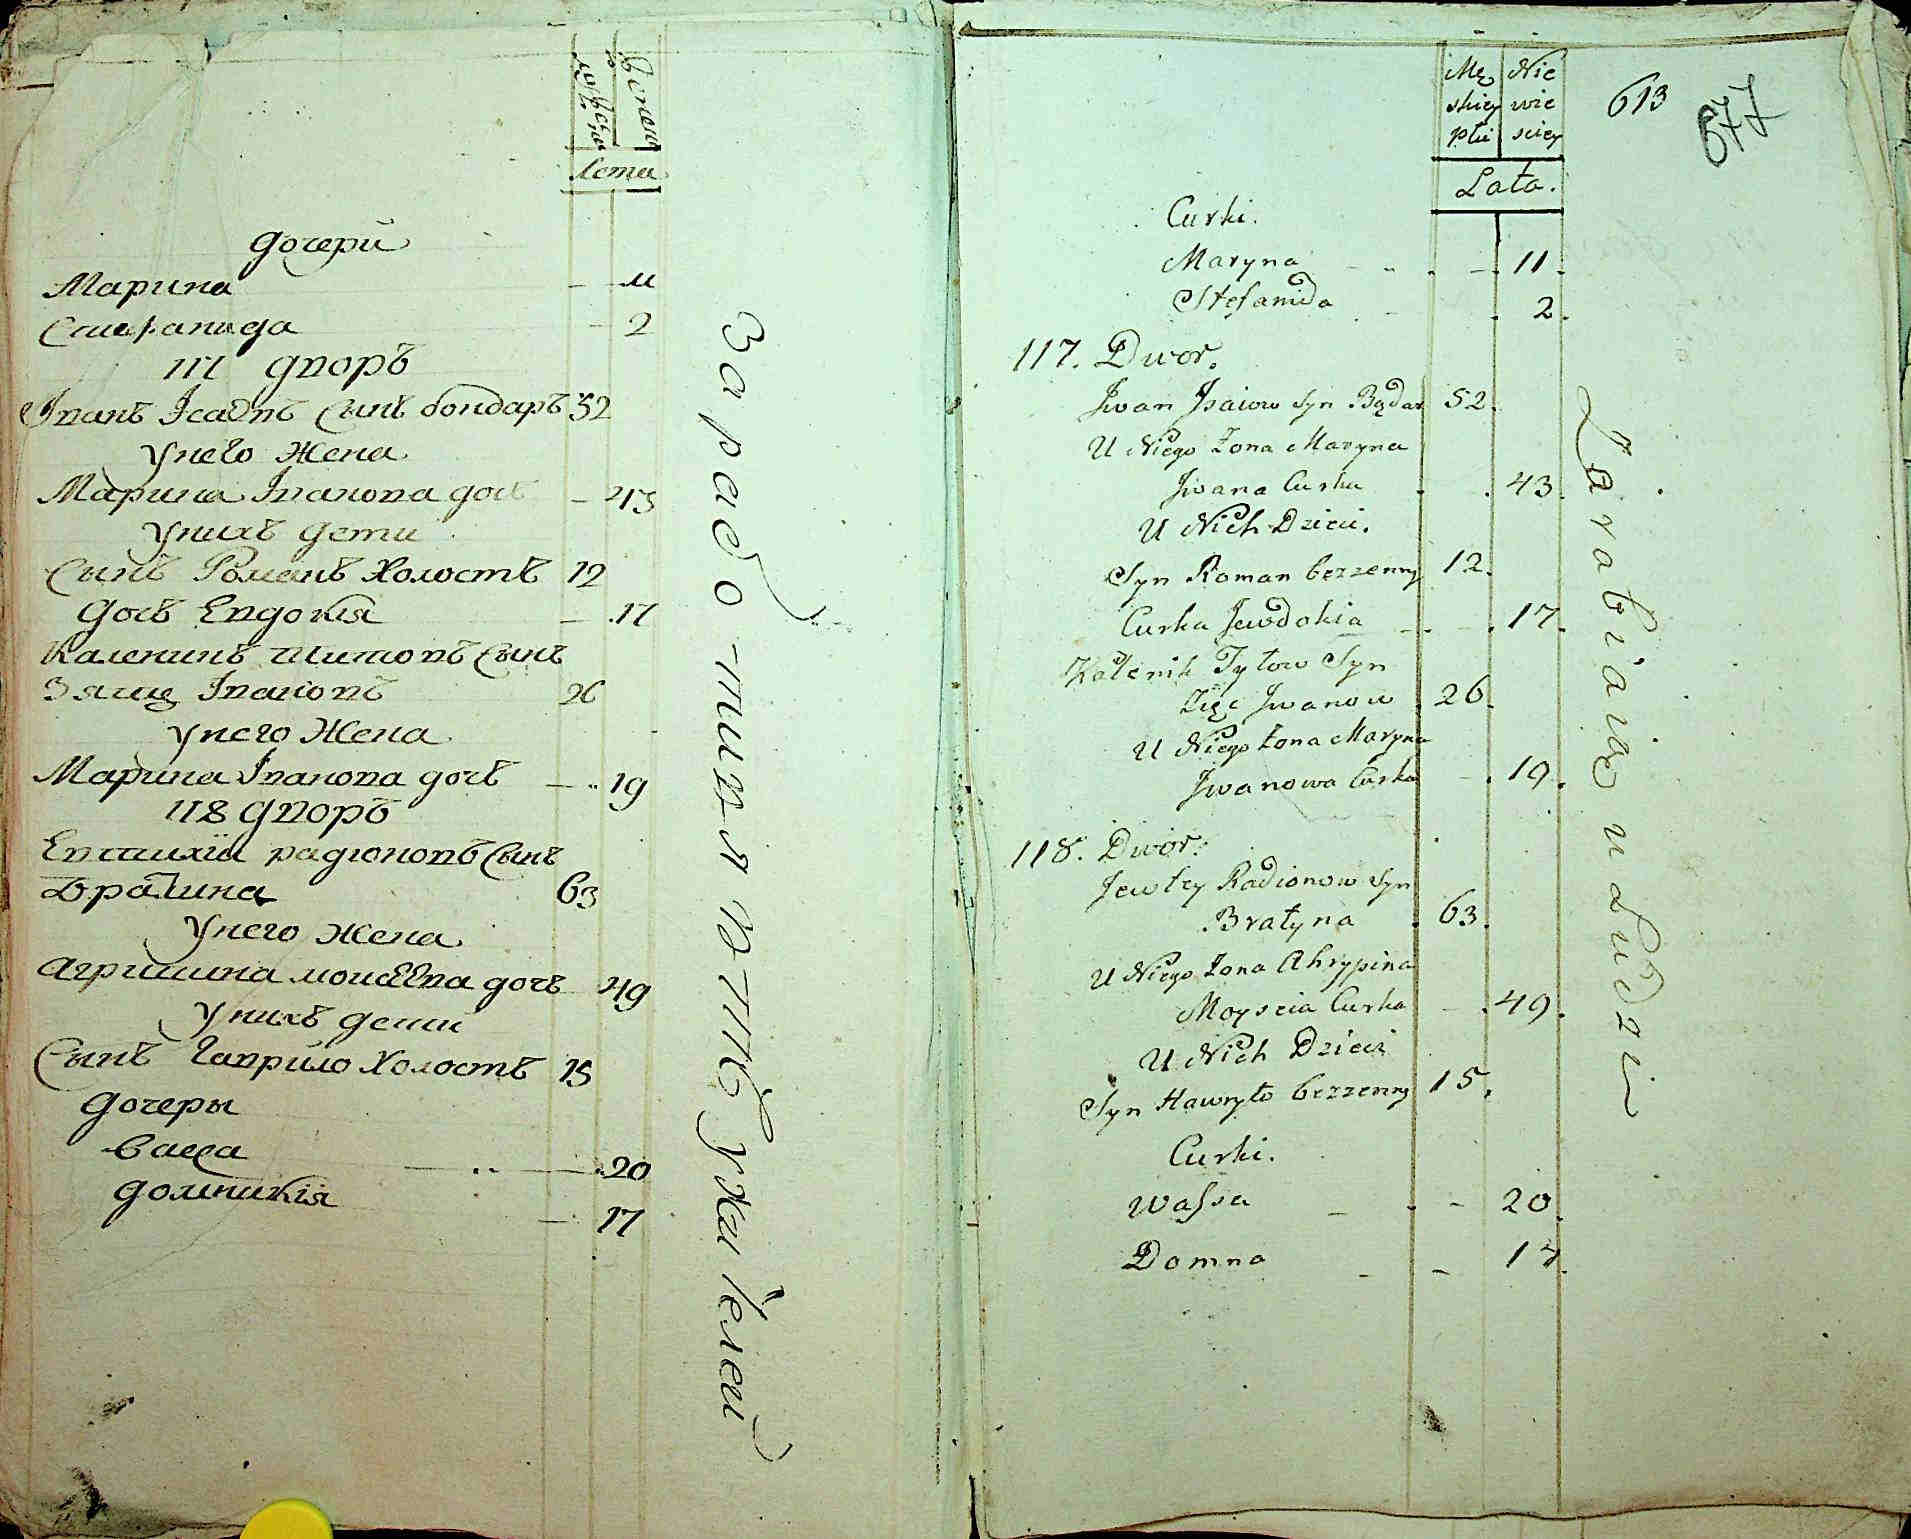 Женска
Лета
Дочери
Марина 11
Стефанида 2
117 дворъ
Иванъ Iсаевъ сынъ бондаръ 52
Унего жена
Марина Iванова дочь 43
Унихъ дети
Сынъ Романъ холостъ 12
Дочь Евдокiя 17
Каленикъ Титовъ сынъ
Зять Iвановъ 26
Унего жена
Марина Iванова дочь 19
118 дворъ
Евтихiй радiоновъ сынъ
Братина 63
Унего жена
Агрипина моисеева дочь 49
Унихъ дети
Сынъ Гаврило холостъ 15
Дочеры
Васса 20
Домникiя 17
Męskiey płci
Niewieściey
613
677
Lata.
Curki.
Maryna 11.
Stefanida 2.
117. Dwor.
Jwan Jsaiow Syn Bądar 52.
U Niego Zona Maryna
Jwana Curka 43.
U Nich Dzieci.
Syn Roman bezzenny 12.
Curka Jewdokia 17.
Kalenik Tytow Syn
Zięc Jwanow 26.
U Niego zona Maryna
Jwanowa Curka 19.
118. Dwor.
Jewtey Radionow Syn
Bratyna 63.
U Niego Zona Ahrypina
Moyseia Curka 49.
U Nich Dzieci
Syn Hawryło bezzenny 15.
Curki.
Wassa 20.
Domna 17.